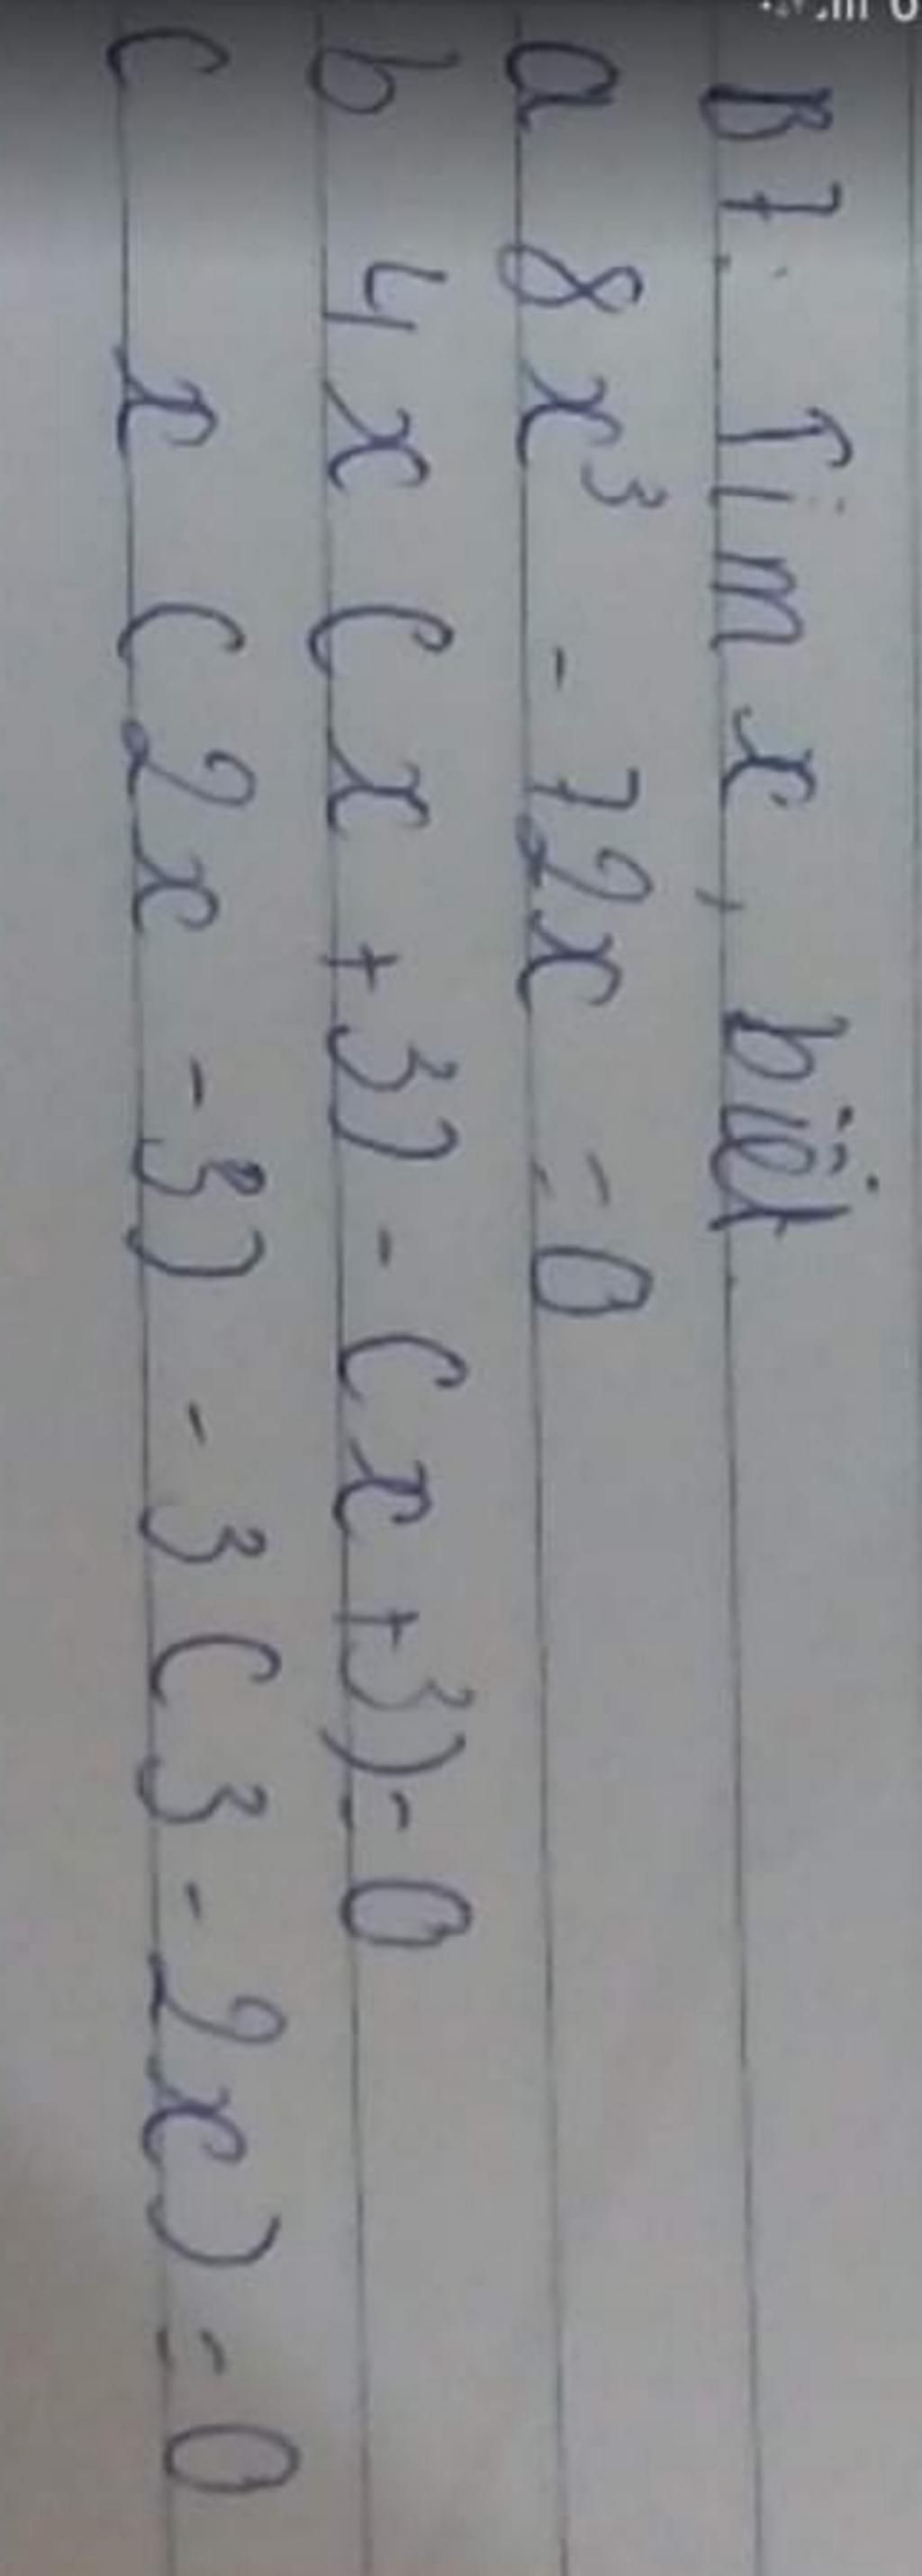 B7. Tìm x, biết
a 8x³ - 72x = 0
b 4x (x + 3) - (x + 3) = 0
c x (2x - 3) - 3 (3 - 2x) = 0